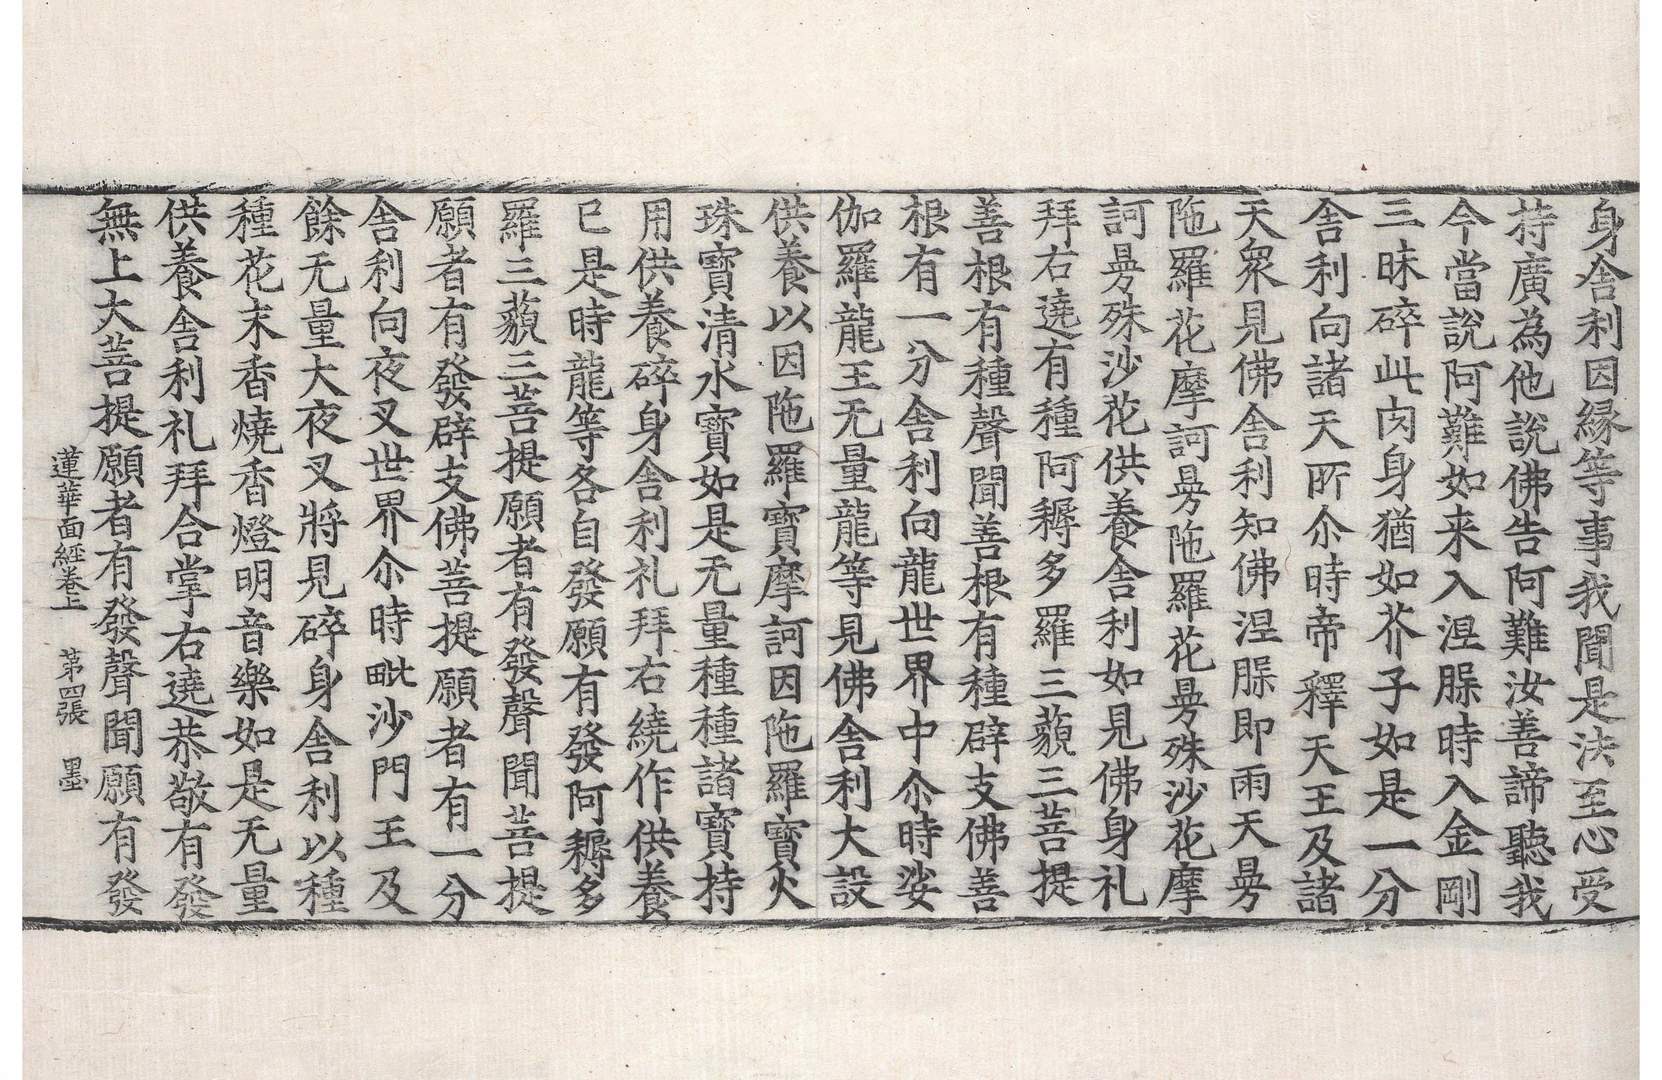 身舍利因緣等事我聞是決至心受
持廣為他說佛告阿難汝善諦聽我
今當說阿難如来入涅槃時入金剛
三昧碎此肉身猶如芥子如是一分
舍利向諸天所尒時帝釋天王及諸
天衆見佛舍利知佛涅槃即雨天曼
陁羅花摩訶曼陁羅花曼殊沙花摩
訶曼殊沙花供養舍利如見佛身礼
拜右遶有種阿耨多羅三藐三菩提
善根有種聲聞善根有種辟支佛善
根有一分舍利向龍世界中尒時娑
伽羅龍王无量龍等見佛舍利大設
供養以因陁羅寶摩訶因陁羅寶火
珠寶清水寶如是无量種種諸寶持
用供養碎身舍利礼拜右繞作供養
已是時龍等各自發願有發阿耨多
羅三藐三菩提願者有發聲聞菩提
願者有發辟支佛菩提願者有一分
舍利向夜叉世界尒時毗沙門王及
餘无量大夜叉將見碎身舍利以種
種花末香燒香燈明音樂如是无量
供養舍利礼拜合掌右遶恭敬有發
無上大菩提願者有發聲聞願有發
蓮華面經卷上　第四張　墨